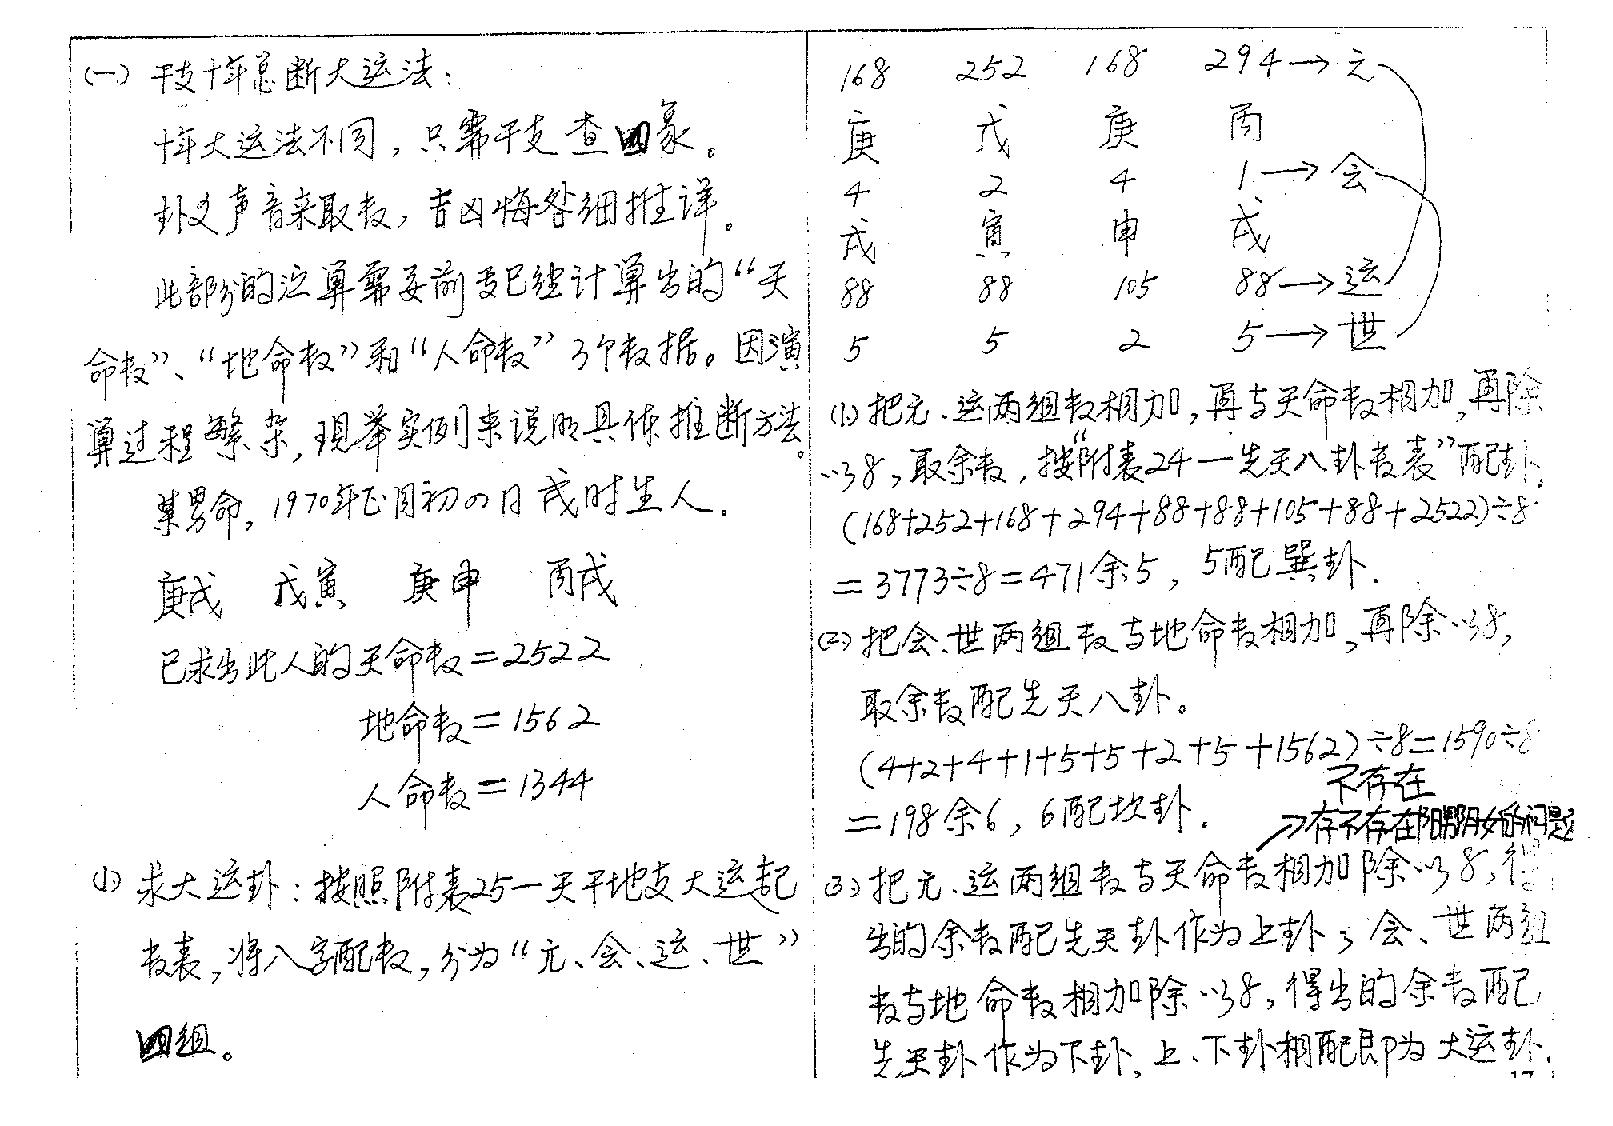 (一) 干支十年总断大运法：
十年大运法不同，只需干支查四象。
卦爻声音来取数，吉凶悔咎细推详。
此部分的注算需要前支已经计算出的“天
命数”、“地命数”和“人命数”3个数据。因演
算过程繁杂，现举实例来说明具体推断方法。
某男命，1970年正月初四日戌时生人.
庚戌 戊寅 庚申 丙戌
已求出此人的天命数=2522
地命数=1562
人命数=1344
(1) 求大运卦：按照附表25一天干地支大运起
数表，将八字配数，分为“元、会、运、世”
四组。
168 252 168 294→元
庚 戊 庚 丙
4 2 4 1→会
戌 寅 申 戌
88 88 105 88→运
5 5 2 5→世
(1)把元.运两组数相加，再与天命数相加，再除
以8，取余数，按“附表24一先天八卦数表”配卦.
(168+252+168+294+88+88+105+88+2522)÷8
=3773÷8=471余5，5配巽卦.
(2)把会、世两组数与地命数相加，再除以8，
取余数配先天八卦。
(4+2+4+1+5+5+2+5+1562)÷8=1590÷8
不存在
=198余6，6配坎卦.
→存不存在阴阳的问题
(3)把元.运两组数与天命数相加除以8，得
出的余数配先天卦作为上卦；会、世两组
数与地命数相加除以8，得出的余数配
先天卦作为下卦，上、下卦相配即为大运卦.